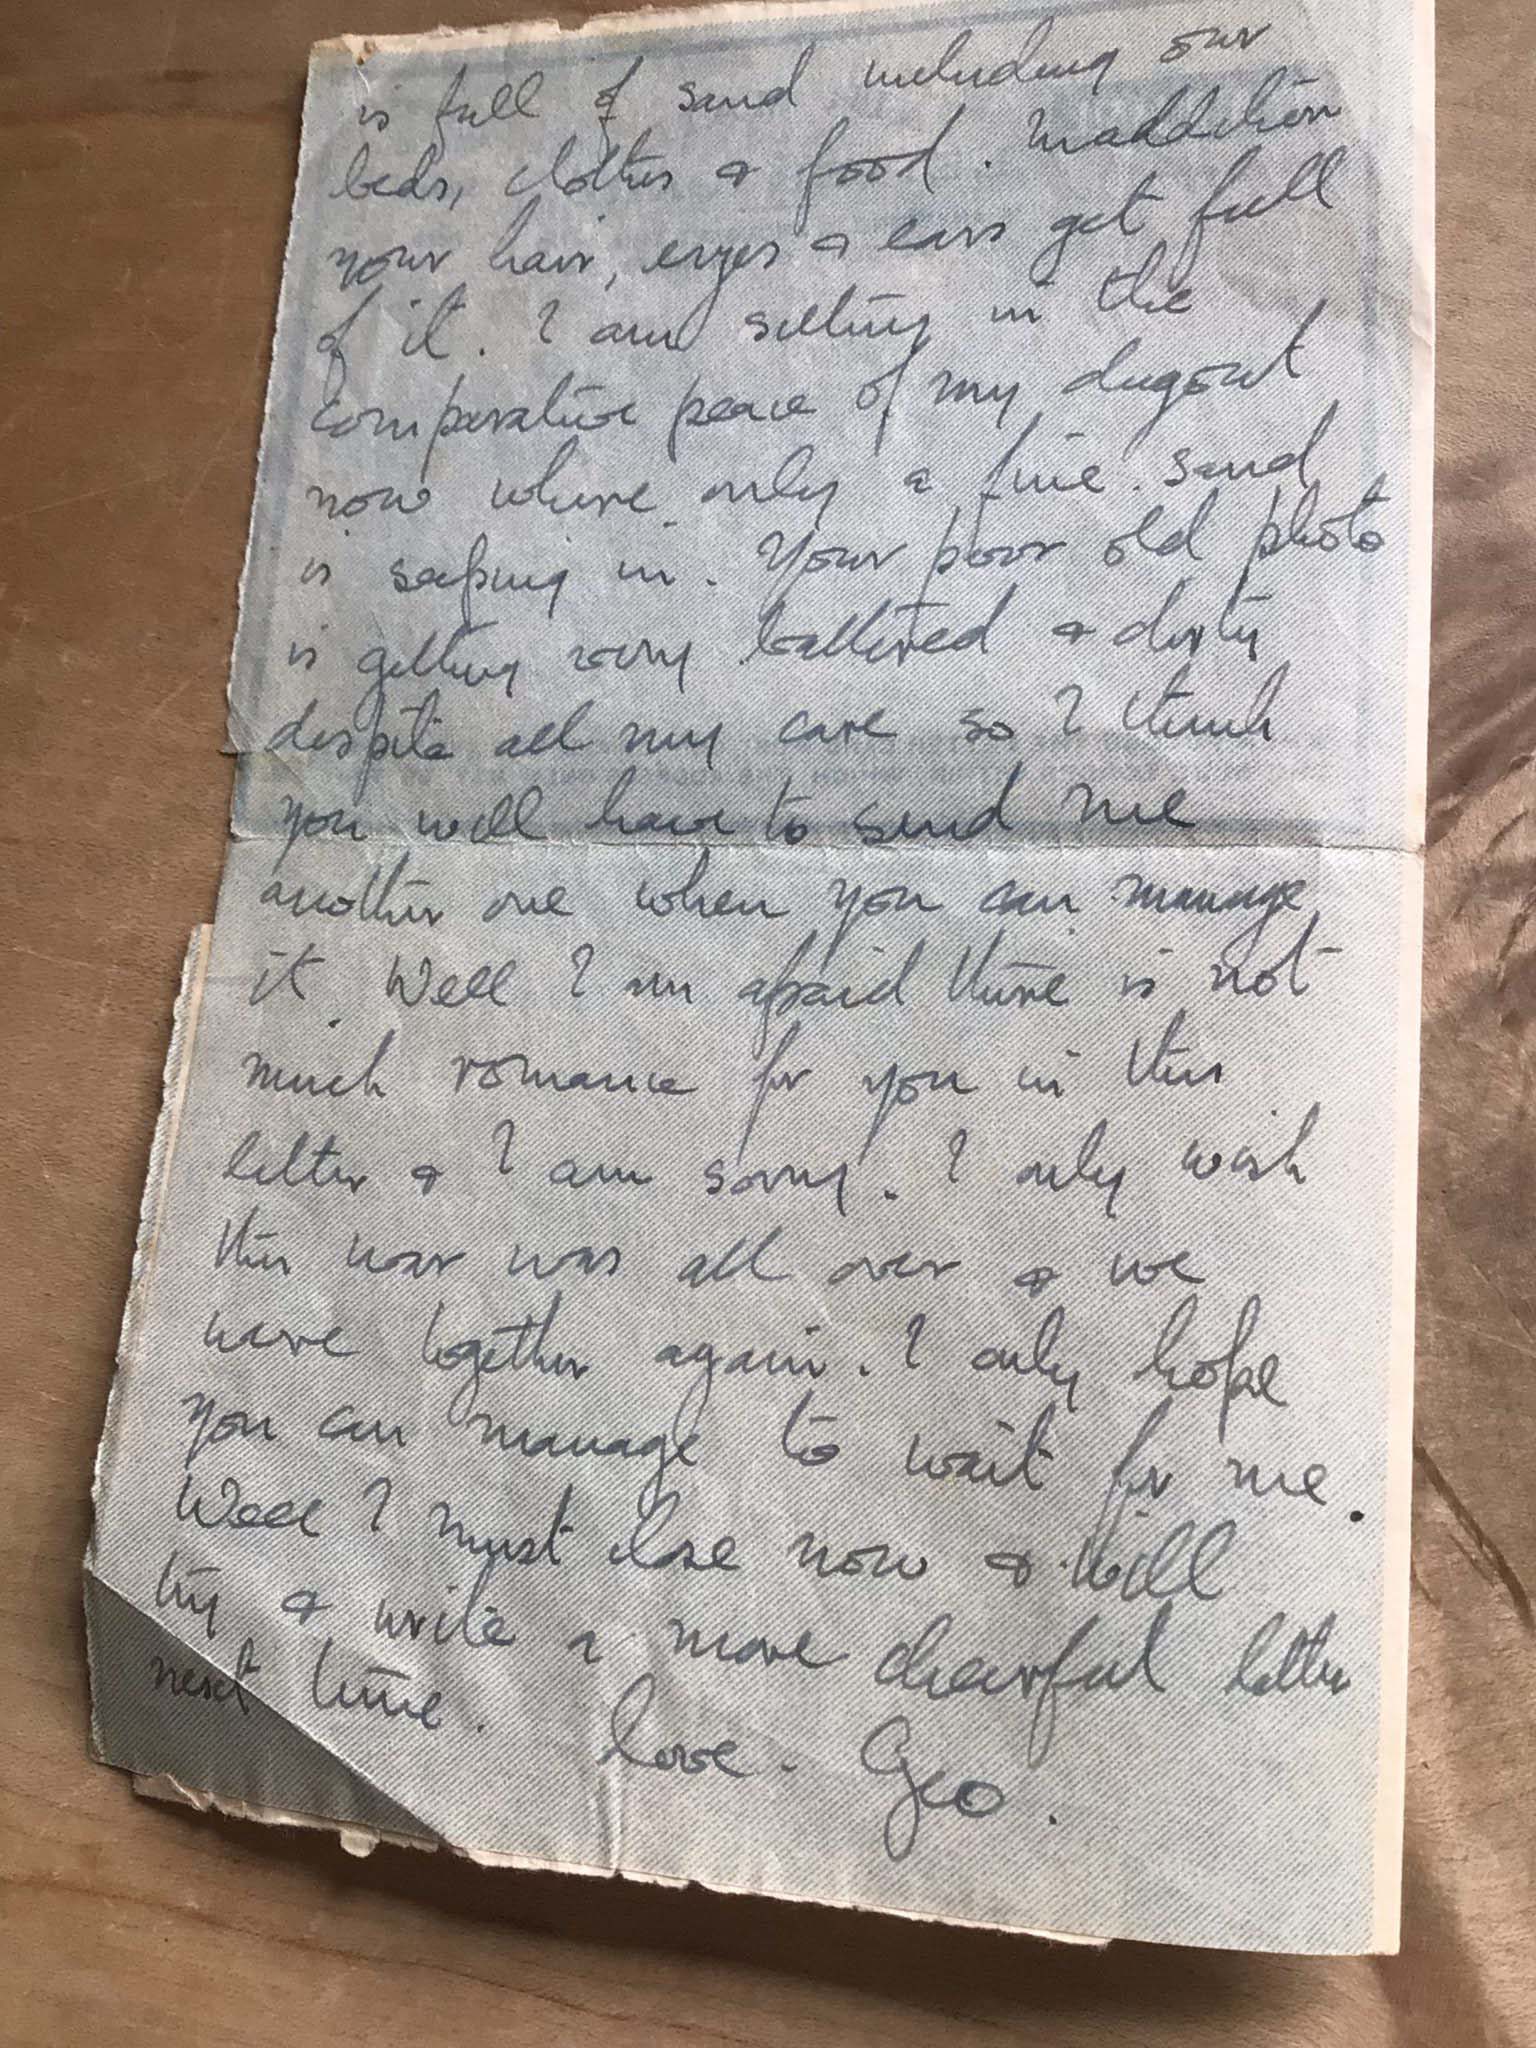 is full of sand including our
beds, clothes & food. In addition
your hair, eyes & ears get full
of it. I am sitting in the
comparative peace of my dugout
now where only a fine sand
is seeping in. Your poor old photo
is getting very battered & dirty
despite all my care so I think
you will have to send me
another one when you can manage
it. Well I am afraid there is not
much romance for you in this
letter & I am sorry. I only wish
this war was all over & we
were together again. I only hope
you can manage to wait for me.
Well I must close now & will
try & write a more cheerful letter
next time. Love. Geo.